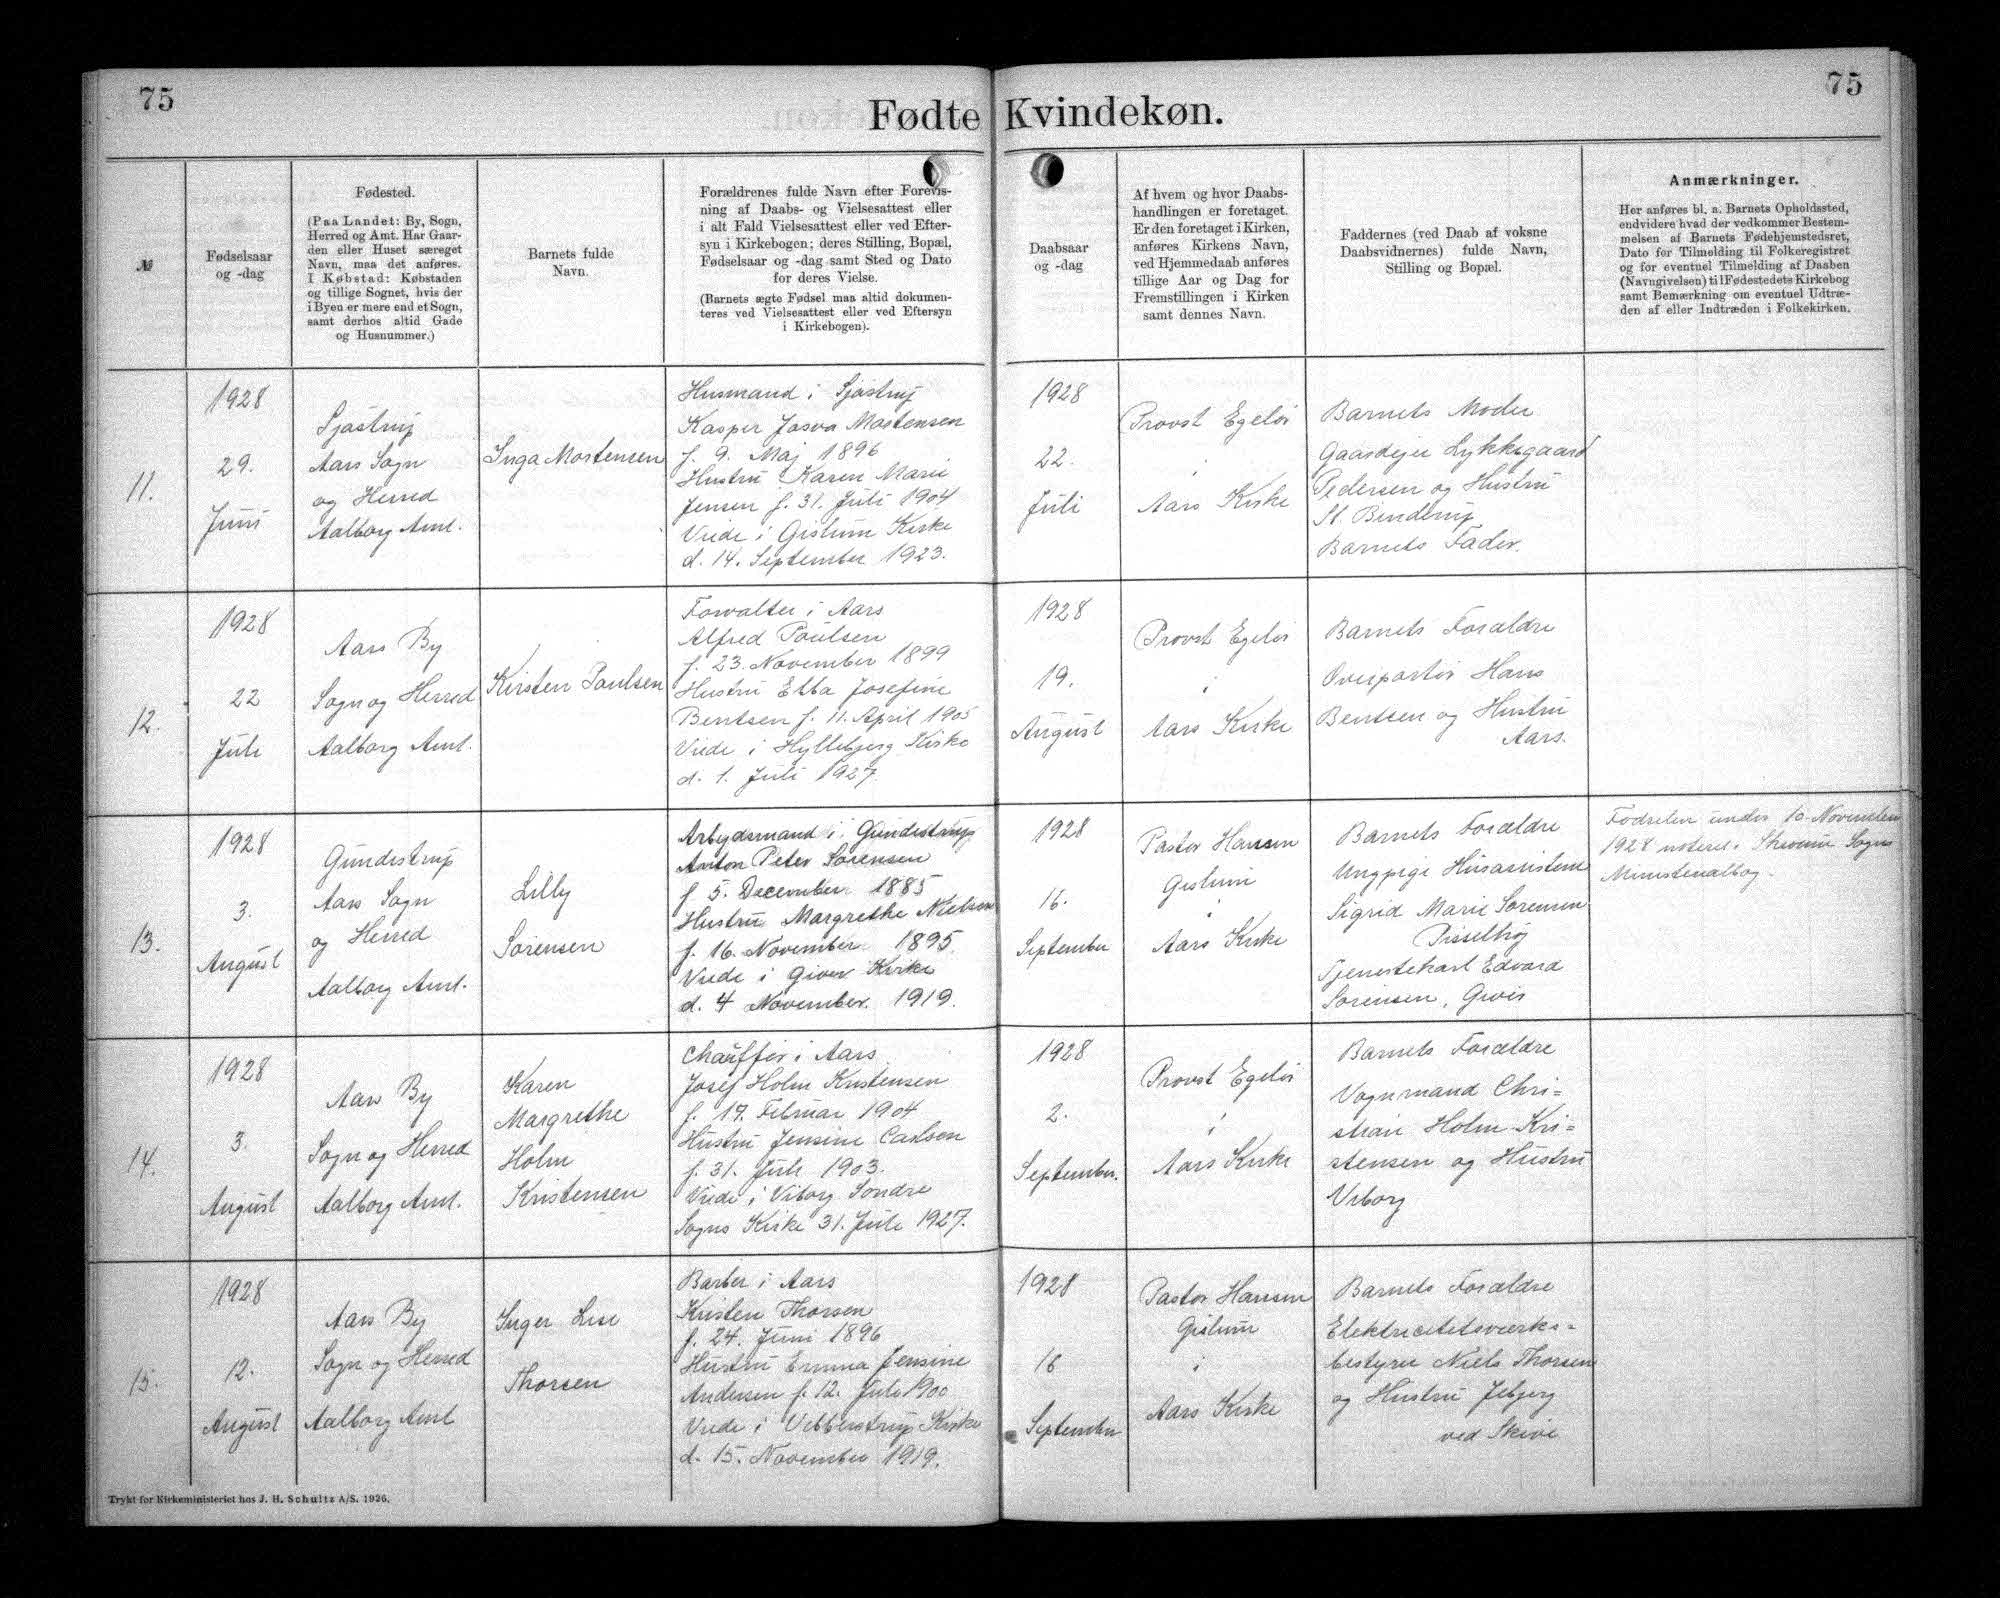 75
75
Fødte Kvindekøn.
№
Fødselsaar
og -dag
Fødested.
(Paa Landet: By, Sogn,
Herred og Amt. Har Gaar-
den eller Huset særeget
Navn, maa det anføres.
I Købstad: Købstaden
og tillige Sognet, hvis der
i Byen er mere end et Sogn,
samt derhos altid Gade
og Husnummer.)
Barnets fulde
Navn.
Forældrenes fulde Navn efter Forevis-
ning af Daabs- og Vielsesattest eller
i alt Fald Vielsesattest eller ved Efter-
syn i Kirkebogen; deres Stilling, Bopæl,
Fødselsaar og -dag samt Sted og Dato
for deres Vielse.
(Barnets ægte Fødsel maa altid dokumen-
teres ved Vielsesattest eller ved Eftersyn
i Kirkebogen).
Daabsaar
og -dag
Af hvem og hvor Daabs-
handlingen er foretaget.
Er den foretaget i Kirken,
anføres Kirkens Navn,
ved Hjemmedaab anføres
tillige Aar og Dag for
Fremstillingen i Kirken
samt dennes Navn.
Faddernes (ved Daab af voksne
Daabsvidnernes) fulde Navn,
Stilling og Bopæl.
Anmærkninger.
Her anføres bl. a. Barnets Opholdssted,
endvidere hvad der vedkommer Bestem-
melsen af Barnets Fødehjemstedsret,
Dato for Tilmelding til Folkeregistret
og for eventuel Tilmelding af Daaben
(Navngivelsen) til Fødestedets Kirkebog
samt Bemærkning om eventuel Udtræ-
den af eller Indtræden i Folkekirken.
11.
1928
29.
Juni
Sjøstrup
Aars Sogn
og Herred
Aalborg Amt.
Inga Mortensen
Husmand i Sjøstrup
Kasper Josva Mortensen
f. 9. Maj 1896
Hustru Karen Marie
Jensen f. 31. Juli 1904
Viede i Gislum Kirke
d. 14. September 1923.
1928
22.
Juli
Provst Egeløv
i
Aars Kirke
Barnets Moder
Gaardejer Lykkegaard
Pedersen og Hustru
St. Binderup
Barnets Fader.
12.
1928
22
Juli
Aars By
Sogn og Herred
Aalborg Amt.
Kirsten Poulsen
Forvalter i Aars
Alfred Poulsen
f. 23. November 1899
Hustru Ebba Josefine
Bentsen f. 11. April 1905
Viede i Hyllebjerg Kirke
d. 1. Juli 1927
1928
19.
August
Provst Egeløv
i
Aars Kirke
Barnets Forældre
Overportør Hans
Bentsen og Hustru
Aars.
13.
1928
3.
August
Gundestrup
Aars Sogn
og Herred
Aalborg Amt.
Lilly
Sørensen
Arbejdsmand i Gundestrup
Anton Peter Sørensen
f 5. December 1885
Hustru Margrethe Nielsen
f. 16. November 1895.
Viede i Giver Kirke
d. 4 November 1919.
1928
16.
September
Pastor Hansen
Gislum
i
Aars Kirke
Barnets Forældre
Ungpige Husassistent
Sigrid Marie Sørensen
Pisselhøj
Tjenestekarl Edvard
Sørensen, Giver
Fødselen under 10. November
1928 noteret i Skivum Sogns
Ministerialbog.
14.
1928
3.
August
Aars By
Sogn og Herred
Aalborg Amt.
Karen
Margrethe
Holm
Kristensen
Chauffør i Aars
Josef Holm Kristensen
f. 17. Februar 1904
Hustru Jensine Carlsen
f. 31. Juli 1903.
Viede i Viborg Søndre
Sogns Kirke 31. Juli 1927.
1928
2.
September.
Provst Egeløv
i
Aars Kirke
Barnets Forældre
Vognmand Chri=
stian Holm Kri=
stensen og Hustru
Viborg
15.
1928
12.
August
Aars By
Sogn og Herred
Aalborg Amt
Inger Lise
Thorsen
Barber i Aars
Kristen Thorsen
f. 24. Juni 1896
Hustru Emma Jensine
Andersen f. 12. Juli 1900
Viede i Vebbestrup Kirke
d. 15. November 1919.
1928
16
September
Pastor Hansen
Gislum
i
Aars Kirke
Barnets Forældre
Elektricitetsværks=
bestyrer Niels Thorsen
og Hustru Jebjerg
ved Skive
Trykt for Kirkeministeriet hos J. H. Schultz A/S. 1926.